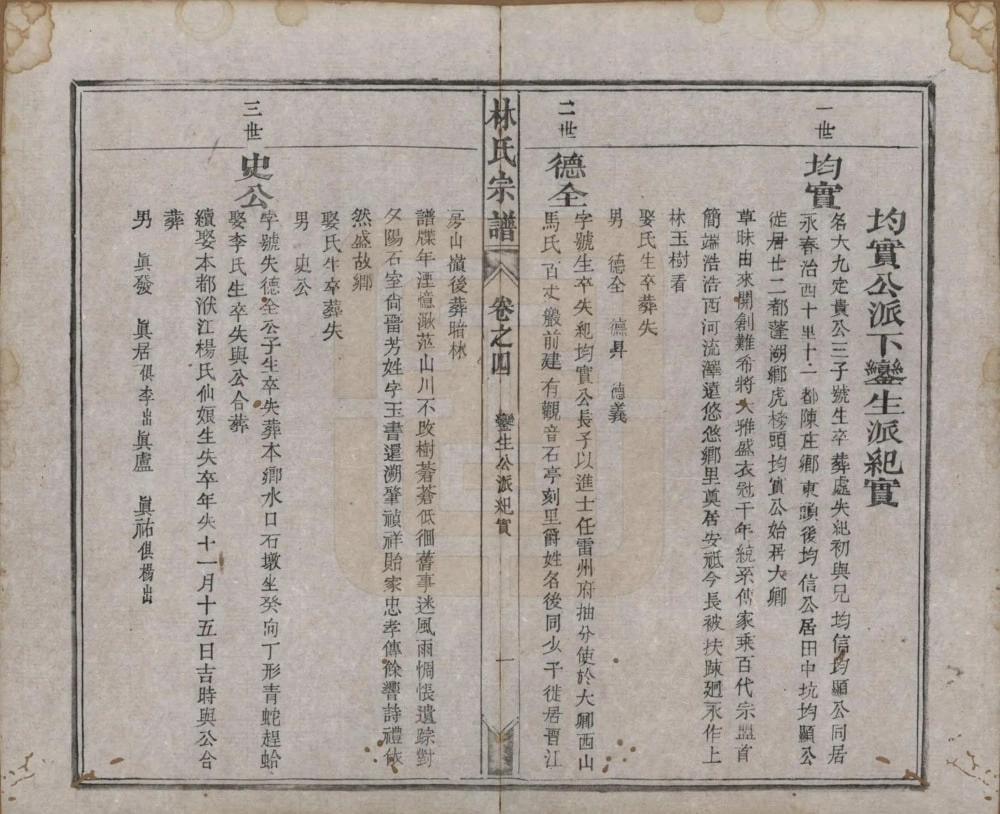 均實公派下鑾生派紀實
一世
均實
名大九定貴公三子號生卒葬處失紀初與兄均信均顯公同居
永春治西十里十一都陳庄鄉東頭後均信公居田中坑均顯公
徙居廿二都蓬湖鄉虎榜頭均實公始居大鄉
草昧由來開創難希將大雅盛衣冠千年統系傳家乘百代宗盟首
簡端浩浩西河流澤遠悠悠鄉里奠居安祗今長被扶踈廻永作上
林玉樹看
娶氏生卒葬失
男 德全 德昇 德義
二世
德全
字號生卒失紀均實公長子以進士任雷州府抽分使於大鄉西山
馬氏百丈殿前建有觀音石亭刻里爵姓名後同少子徙居晋江
房山嶺後葬暗林
譜牒年湮憶澈茫山川不改樹蒼蒼低徊舊事迷風雨惆悵遺踪對
夕陽石室尚留芳姓字玉書還溯肇禎祥貽家忠孝傳餘響詩禮依
然盛故鄉
娶氏生卒葬失
男 史公
林氏宗譜
卷之四
鑾生公派紀實
一
三世
史公
字號失德全公子生卒失葬本鄉水口石墩坐癸向丁形青蛇趕蛤
娶李氏生卒失與公合葬
續娶本都洑江楊氏仙娘生失卒年失十一月十五日吉時與公合
葬
男 眞發 眞居俱李出 眞盧 眞祐俱楊出